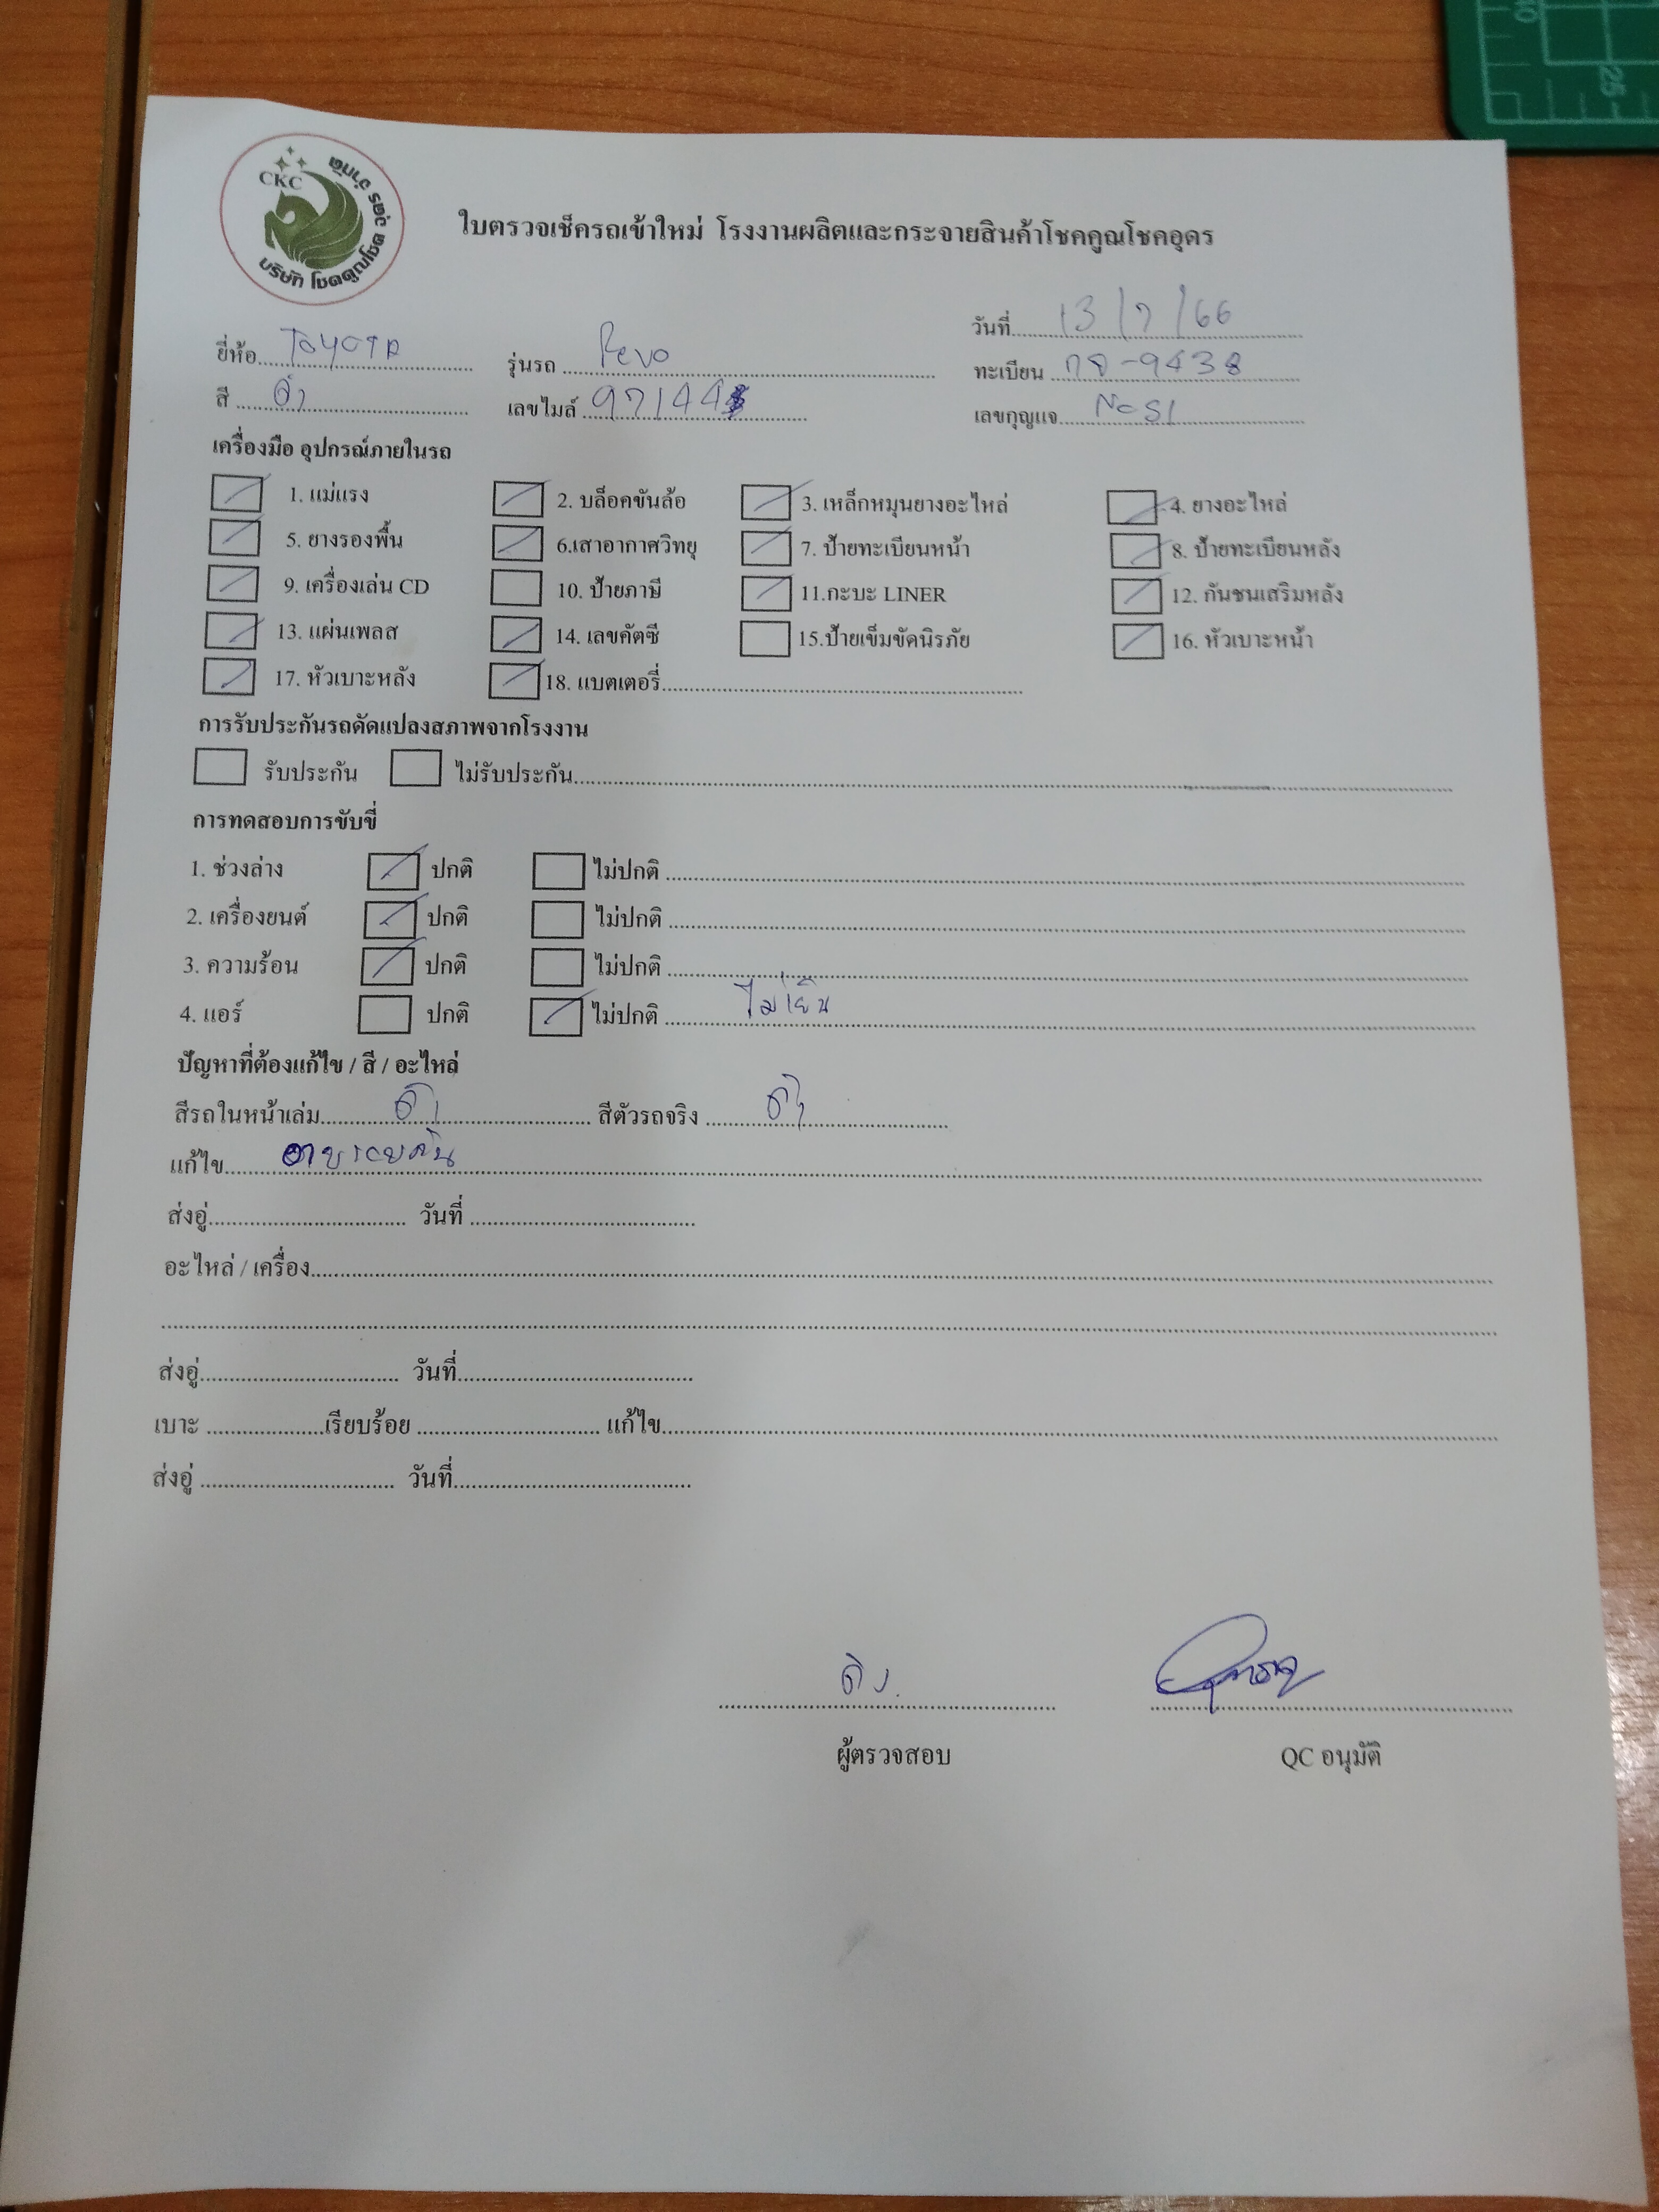 CKC
บริษัท โชคคูณโชค อุดร จำกัด
ใบตรวจเช็ครถเข้าใหม่ โรงงานผลิตและกระจายสินค้าโชคคูณโชคอุดร
วันที่ 13/7/66
ยี่ห้อ TOYOTA รุ่นรถ Revo ทะเบียน -9438
สี ดำ เลขไมล์ 97144 เลขกุญแจ No 51
เครื่องมือ อุปกรณ์ภายในรถ
1. แม่แรง 2. บล็อคขันล้อ 3. เหล็กหมุนยางอะไหล่ 4. ยางอะไหล่
5. ยางรองพื้น 6.เสาอากาศวิทยุ 7. ป้ายทะเบียนหน้า 8. ป้ายทะเบียนหลัง
9. เครื่องเล่น CD 10. ป้ายภาษี 11.กะบะ LINER 12. กันชนเสริมหลัง
13. แผ่นเพลส 14. เลขคัตซี 15.ป้ายเข็มขัดนิรภัย 16. หัวเบาะหน้า
17. หัวเบาะหลัง 18. แบตเตอรี่
การรับประกันรถดัดแปลงสภาพจากโรงงาน
รับประกัน ไม่รับประกัน
การทดสอบการขับขี่
1. ช่วงล่าง ปกติ ไม่ปกติ
2. เครื่องยนต์ ปกติ ไม่ปกติ
3. ความร้อน ปกติ ไม่ปกติ
4. แอร์ ปกติ ไม่ปกติ ไม่เย็น
ปัญหาที่ต้องแก้ไข / สี / อะไหล่
สีรถในหน้าเล่ม ดำ สีตัวรถจริง ดำ
แก้ไข
ส่งอู่ วันที่
อะไหล่ / เครื่อง
ส่งอู่ วันที่
เบาะ เรียบร้อย แก้ไข
ส่งอู่ วันที่
ผู้ตรวจสอบ QC อนุมัติ
25